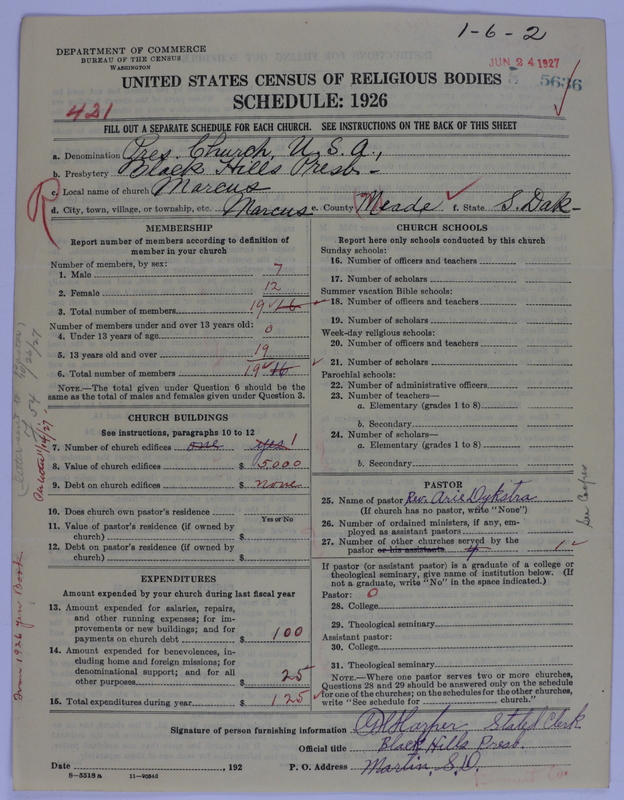 1-6-2
DEPARTMENT OF COMMERCE
BUREAU OF THE CENSUS
WASHINGTON
JUN 24 1927
5636
UNITED STATES CENSUS OF RELIGIOUS BODIES
SCHEDULE: 1926
421
FILL OUT A SEPARATE SCHEDULE FOR EACH CHURCH. SEE INSTRUCTIONS ON THE BACK OF THIS SHEET
a. Denomination Pres. Church, U.S.A.,
b. Presbytery Black Hills Presb-
c. Local name of church Marcus
d. City, town, village, or township, etc. Marcus e. County Meade f. State S. Dak-
MEMBERSHIP
Report number of members according to definition of member in your church
Number of members, by sex:
1. Male 7
2. Female 12
3. Total number of members 19 16
Number of members under and over 13 years old:
4. Under 13 years of age 0
5. 13 years old and over 19
6. Total number of members 19 16
NOTE.—The total given under Question 6 should be the same as the total of males and females given under Question 3.
CHURCH BUILDINGS
See instructions, paragraphs 10 to 12
7. Number of church edifices one yes 1
8. Value of church edifices $ 5000
9. Debt on church edifices $ none
10. Does church own pastor's residence?
Yes or No
11. Value of pastor's residence (if owned by church) $
12. Debt on pastor's residence (if owned by church) $
EXPENDITURES
Amount expended by your church during last fiscal year
13. Amount expended for salaries, repairs, and other running expenses; for improvements or new buildings; and for payments on church debt $ 100
14. Amount expended for benevolences, including home and foreign missions; for denominational support; and for all other purposes $ 25
15. Total expenditures during year $ 125
CHURCH SCHOOLS
Report here only schools conducted by this church
Sunday schools:
16. Number of officers and teachers
17. Number of scholars
Summer vacation Bible schools:
18. Number of officers and teachers
19. Number of scholars
Week-day religious schools:
20. Number of officers and teachers
21. Number of scholars
Parochial schools:
22. Number of administrative officers
23. Number of teachers—
a. Elementary (grades 1 to 8)
b. Secondary
24. Number of scholars—
a. Elementary (grades 1 to 8)
b. Secondary
PASTOR
25. Name of pastor Rev. Arie Dykstra
(If church has no pastor, write "None")
26. Number of ordained ministers, if any, employed as assistant pastors
27. Number of other churches served by the pastor or his assistants 4 1
If pastor (or assistant pastor) is a graduate of a college or theological seminary, give name of institution below. (If not a graduate, write "No" in the space indicated.)
Pastor: 0
28. College
29. Theological seminary
Assistant pastor:
30. College
31. Theological seminary
NOTE.—Where one pastor serves two or more churches, Questions 28 and 29 should be answered only on the schedule for one of the churches; on the schedules for the other churches, write "See schedule for church."
Signature of person furnishing information Harper Stated Clerk
Official title Black Hills Presb.
Date , 192 P. O. Address Martin, S.D.
8-5518a 11-90846
from 1926 year Book